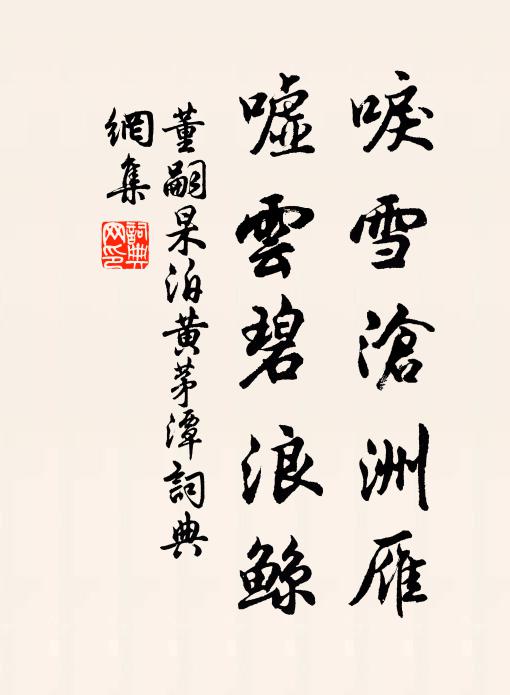 唳雪滄洲雁
噓雲碧浪鯨
董嗣杲泊黄茅潭詞典
網集
詞典
网印